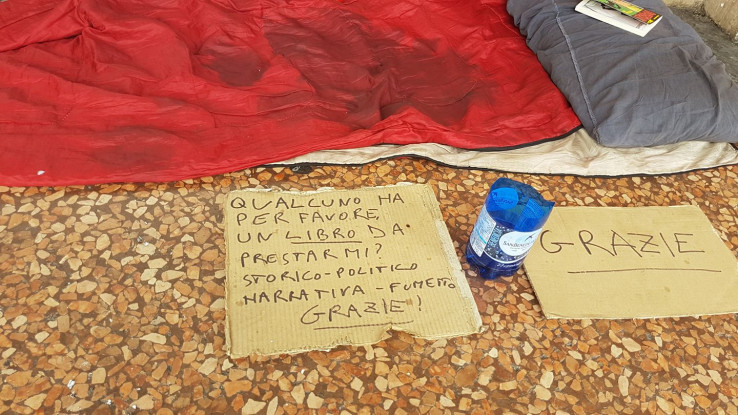 QUALCUNO HA
PER FAVORE
UN LIBRO DA
PRESTARMI?
STORICO-POLITICO
NARRATIVA-FUMETTO
GRAZIE!
GRAZIE